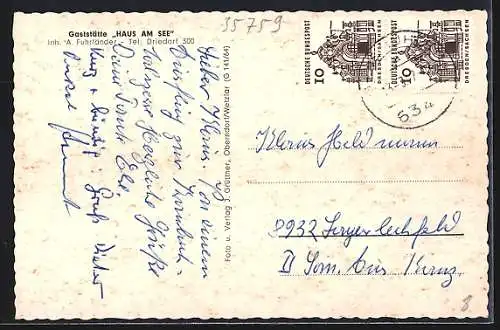 35759
Gaststätte „HAUS AM SEE"
Inh. A. Fuhrländer - Tel. Driedorf 300
Lieber Klaus! Von einem
Ausflug zur Krombach-
talsperre herzliche Grüße
Deine Tante Else
Kurz + bündig: Gruß Dieter
Onkel
Foto u. Verlag J. Grüttner, Oberndorf/Wetzlar (O 141/64)
DEUTSCHE BUNDESPOST
10
DRESDEN/SACHSEN
DEUTSCHE BUNDESPOST
10
DRESDEN/SACHSEN
634
Klaus Heldmann
8932 Lagerlechfeld
8